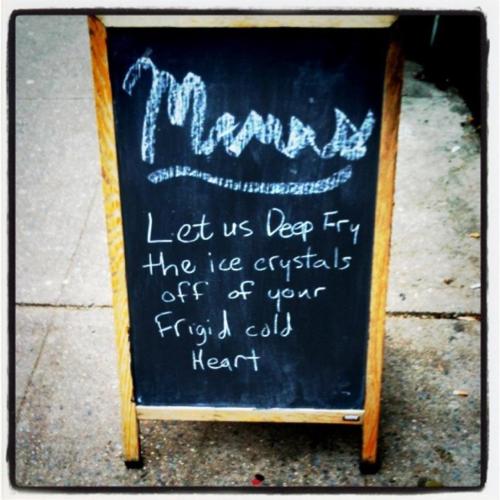 Mama's
Let us Deep Fry
the ice crystals
off of your
Frigid cold
Heart